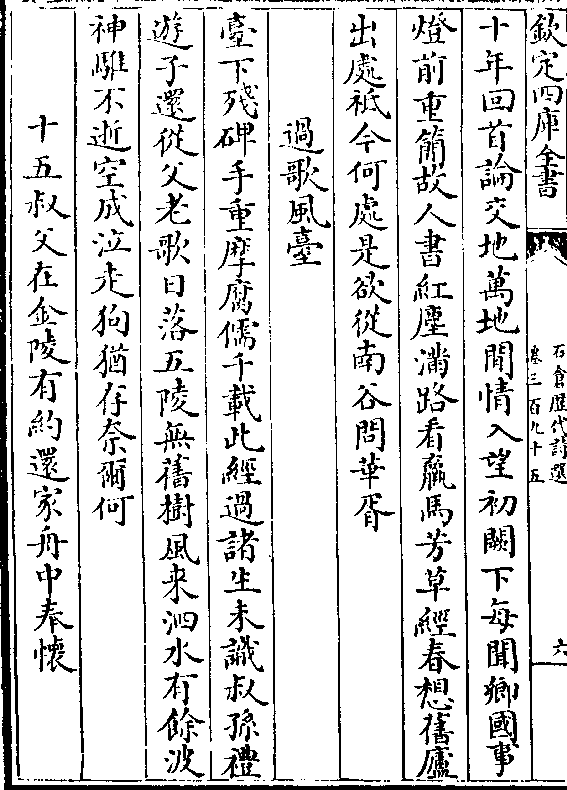 欽定四庫全書
石倉歷代詩選
卷三百九十五
六
十年回首論交地萬地閒情入望初闕下每聞鄉國事
燈前重簡故人書紅塵滿路看羸馬芳草經春想舊廬
出處祗今何處是欲從南谷問華胥
過歌風臺
臺下殘碑手重摩腐儒千載此經過諸生未識叔孫禮
遊子還從父老歌日落五陵無舊樹風来泗水有餘波
神騅不逝空成泣走狗猶存奈爾何
十五叔父在金陵有約還家舟中奉懷